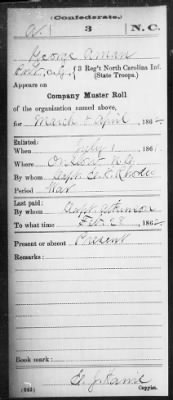 (Confederate.)
3 N.C.
George Aman
, Co. , 3 Reg't North Carolina Inf.
(State Troops.)
Appears on
Company Muster Roll
of the organization named above,
for March & April, 186
Enlisted:
When July 1, 186
Where Onslow N.C.
By whom Capt.
Period War
Last paid:
By whom Capt.
To what time Feb. 28, 186
Present or absent Present
Remarks:
Book mark:
(642)
Copyist.